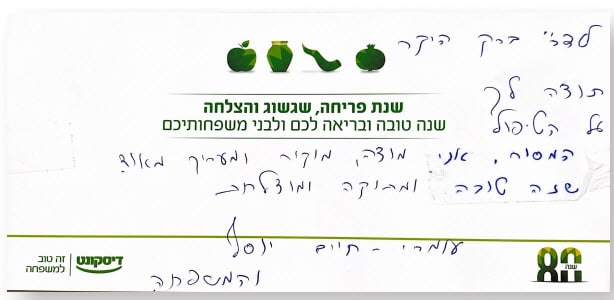 לדר' ברק היקר
תודה לך
על הטיפול
המסור, אני מודה, מוקיר ומעריך מאוד
שנה טובה ומתוקה ומוצלחת
עומרי - חיים יוסף
והמשפחה
שנת פריחה, שגשוג והצלחה
שנה טובה ובריאה לכם ולבני משפחותיכם
דיסקונט
זה טוב
למשפחה
80 שנה